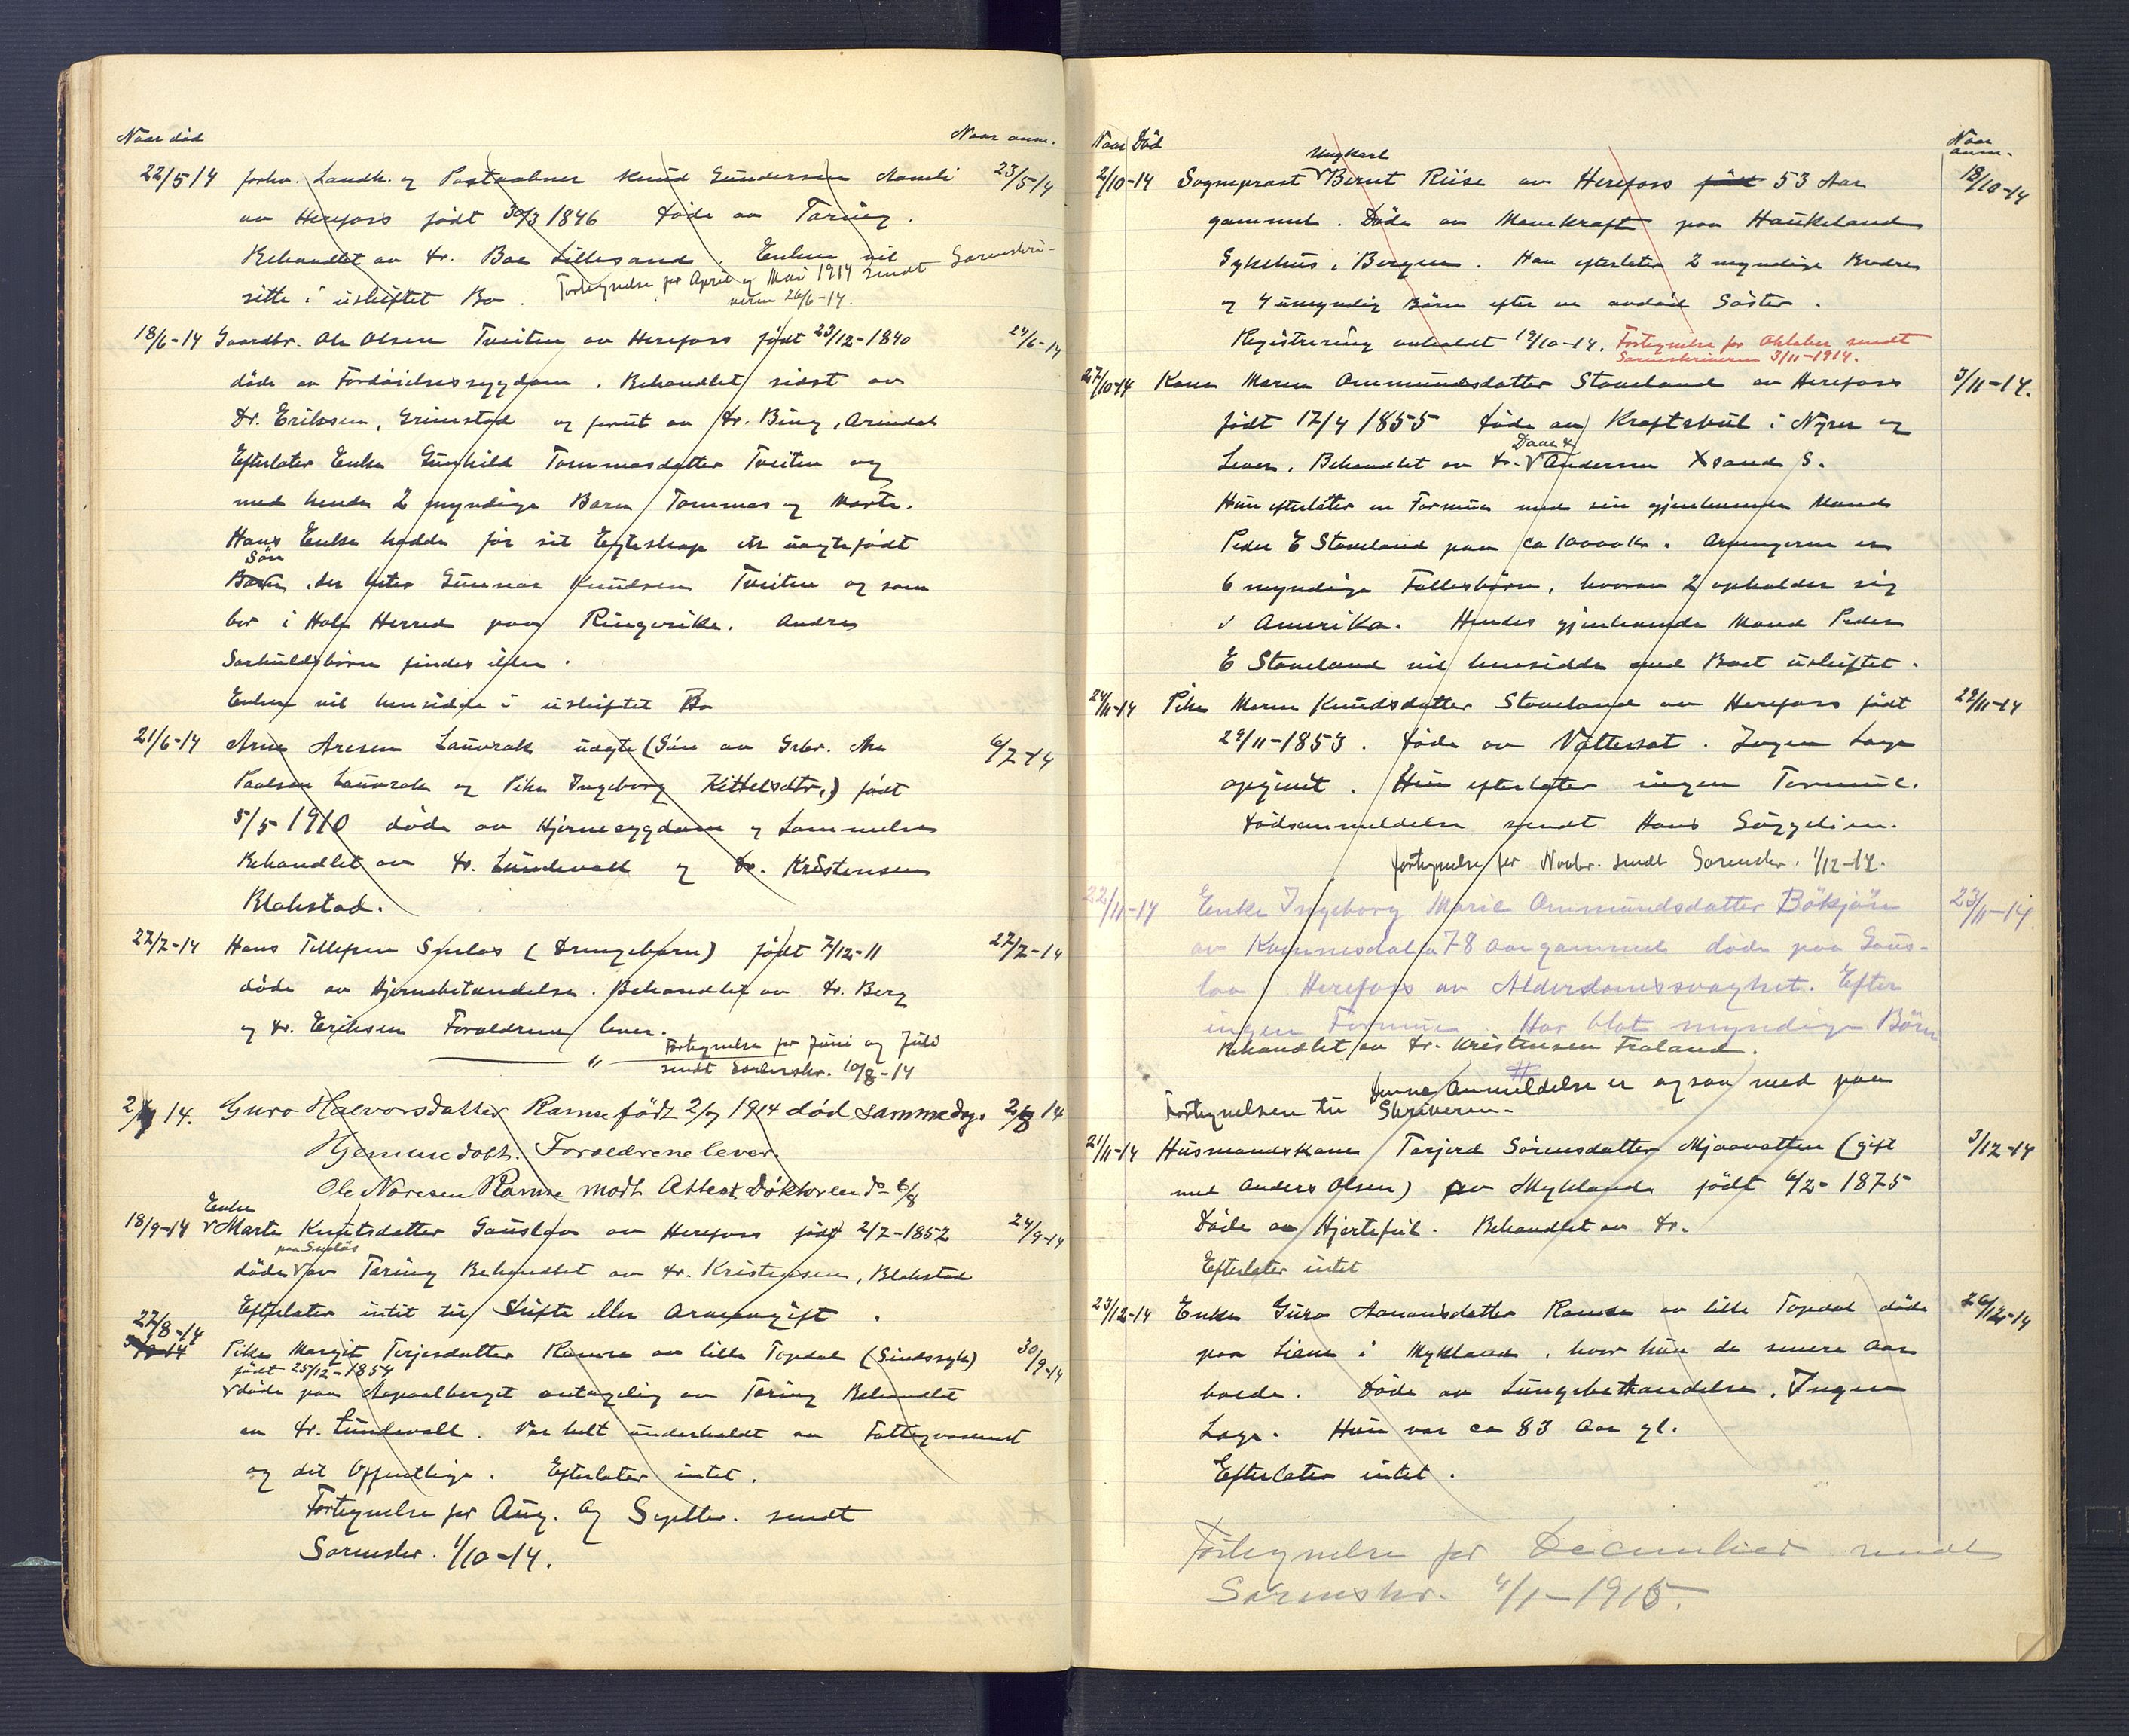 Naar död Naar anm.
22/5 14 forhv. Landh. og Postaabner Knud Gundersen Aamli 23/5 14
av Herefoss født 30/3 1846 Døde av Tæring.
Behandlet av Dr. Boe Lillesand. Enken vil
sitte i uskiftet Bo. Fortegnelse for April og Mai 1914 sendt Sorenskri-
veren 26/6-14.
18/6-14 Gaardbr. Ole Olsen Tveiten av Herefoss født 23/12-1840 24/6-14
døde av Fordøielsessygdom. Behandlet sidst av
Dr. Eriksen, Grimstad og forut av Dr. Bing, Arendal
Efterlater Enke Gunhild Tommasdatter Tveiten og
med hende 2 myndige Barn Tommas og Marte.
Hans Enke hadde før sit Egteskap et uegtefødt
Søn
Barn, der heter Gunnar Knudsen Tveiten og som
bor i Hole Herred paa Ringerike. Andre
Særkuldsbörn findes ikke.
Enken vil hensidde i uskiftet Bo
21/6-14 Arne Aresen Lauvrak uægte (Søn av Grbr. Are 6/7-14
Paulsen Lauvrak og Pike Ingeborg Kittelsdtr.) født
5/5 1910 døde av Hjernesygdom og Lammelse
Behandlet av Dr. Lundevall og Dr. Kristensen
Blakstad.
27/7-14 Hans Tellefsen Snelas (Drengebarn) født 7/12-11 27/7-14
døde av Hjernebetændelse. Behandlet av Dr. Berg
og Dr. Eriksen Forældrene lever.
" Fortegnelse for Juni og Juli
sendt Sorenskr. 10/8-14
14. Guro Halvorsdatter Ramse födt 2/7 1914 död samme dag. 2/8 14
Hjemmedöbt. Forældrene lever.
Ole Noresen Ramse modt Attest Doktoren
Enke
18/9-14 Marte Knutsdatter Gauslaa av Herefoss født 2/7-1852 24/9-14
paa Snelås
døde av Tæring Behandlet av Dr. Kristensen, Blakstad
Efterlater intet til Skifte eller Arveavgift.
27/8-14
Pike Margit Terjesdatter Ramse av lille Topdal (Sindssyk) 30/9-14
født 25/12-1854
døde paa antagelig av Tæring Behandlet
av Dr. Lundevall. Var helt underholdt av Fattigvæsenet
og det Offentlige. Efterlater intet.
Fortegnelse for Aug. og Septbr. sendt
Sorenskr. 1/10-14.
Naar Död Naar anm.
Ungkarl
2/10-14 Sogneprest Bernt Riise av Herefoss født 53 Aar 12/10-14
gammel. Døde av Mavekraft paa Haukeland
Sykehus i Bergen. Han efterlater 2 myndige Brødre
og 4 umyndig Börn efter en avdød Søster.
Registrering avholdt 19/10-14. Fortegnelse for Oktober sendt
Sorenskriveren 3/11-1914.
27/10-14 Kone Maren Ommundsdatter Staveland av Herefoss 3/11-14.
født 17/4 1855 Døde av Kræftsvul i Nyren og
Daae &
Lever. Behandlet av Dr. Andersen Xsand S.
Hun efterlater en Formue med sin gjenlevende Mand
Peder E Staveland paa ca 10000 kr. Arvingerne er
6 myndige Fællesbörn, hvorav 2 opholder sig
i Amerika. Hendes gjenlevende Mand Peder
E Staveland vil hensidde med Boet uskiftet.
24/11-14 Pike Maren Knudsdatter Staveland av Herefoss født 29/11-14
29/11-1853. Døde av Vattersot. Ingen Læge
opgivet. Hun efterlater ingen Formue.
Dødsanmeldelse sendt Hans Gaggelien.
Fortegnelse for Novbr. sendt Sorenskr. 1/12-14.
22/11-14 Enke Ingeborg Marie Ommundsdatter Bökjön 23/11-14
av Kvinnesdal 78 aar gammel døde paa Gaus-
laa Herefoss av Alderdomssvaghet. Efter
ingen Formue. Har blot myndige Börn
Behandlet av Dr. Kristensen Froland.
Denne Anmeldelse er ogsaa med paa
Fortegnelsen til Skriveren.
21/11-14 Husmandskone Torjerd Sörensdatter Mjaavatten (gift 3/12-14
med Anders Olsen) av Mykland født 6/2-1875
Døde av Hjertefeil. Behandlet av Dr.
Efterlater intet
23/12-14 Enke Guro Aanonsdatter Ramse av lille Topdal døde 26/12-14
paa Liene i Mykland, hvor hun de senere Aar
boede. Døde av Lungebetændelse. Ingen
Læge. Hun var ca 83 Aar gl.
Efterlater intet.
Fortegnelse for December sendt
Sorenskr. 4/1-1915.